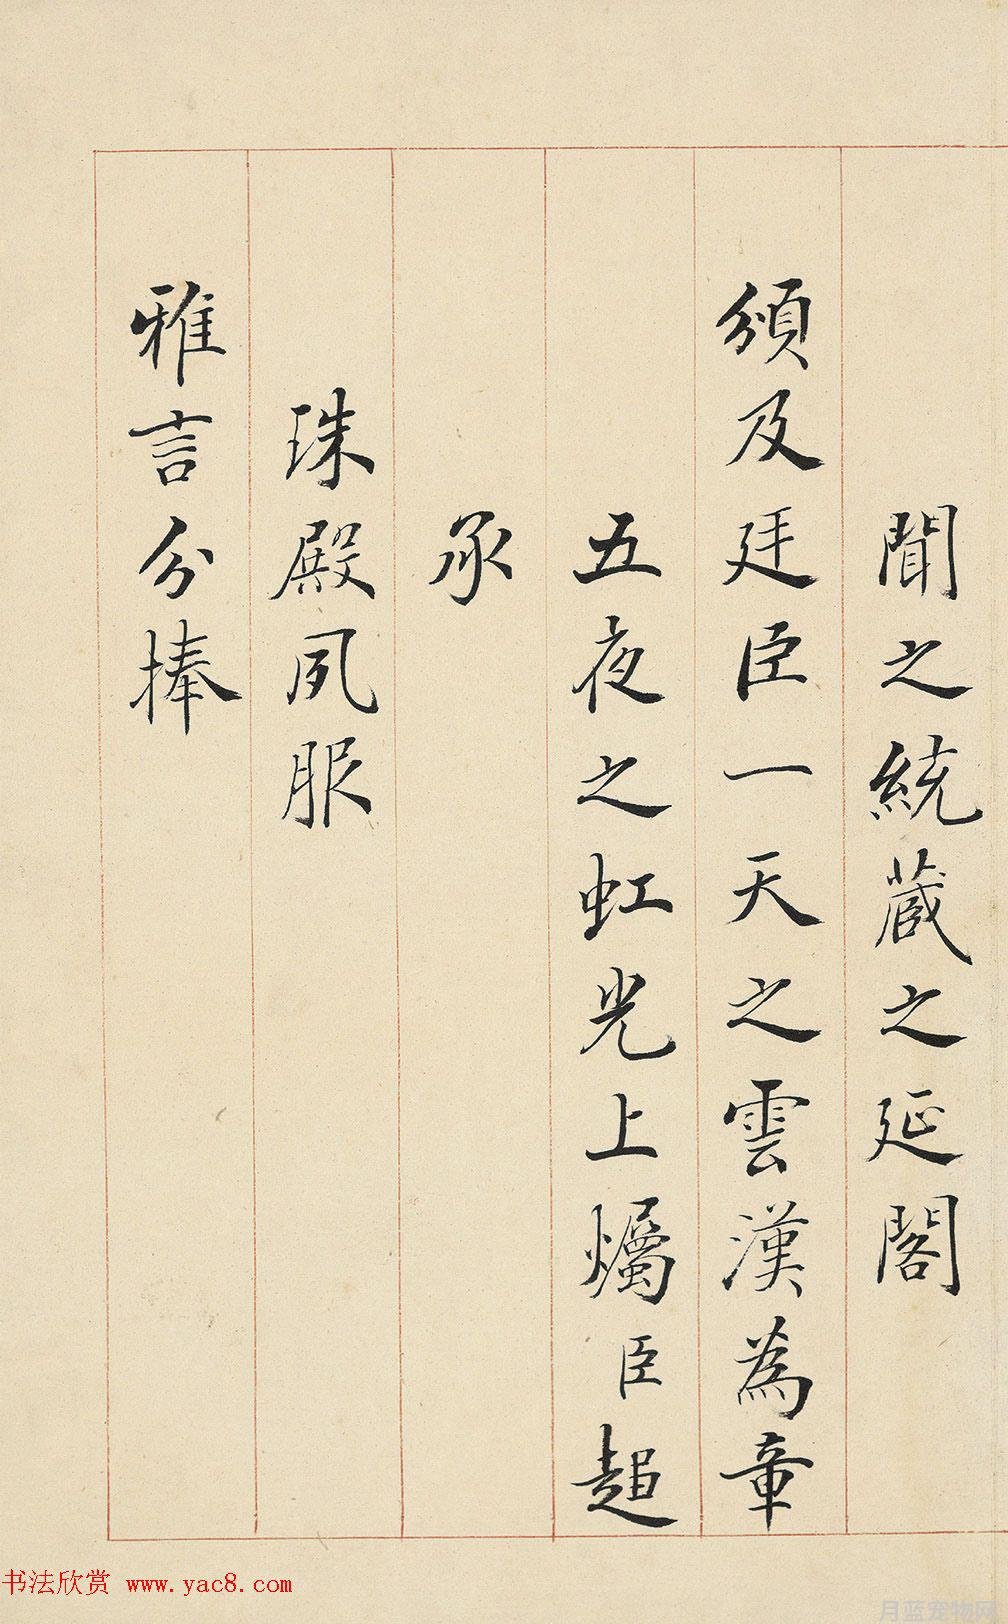 聞之統蔵之延閣
頒及廷臣一天之雲漢為章
五夜之虹光上爥臣趨
承
珠殿夙服
雅言分捧
书法欣赏 www.yac8.com
月蓝宠物网